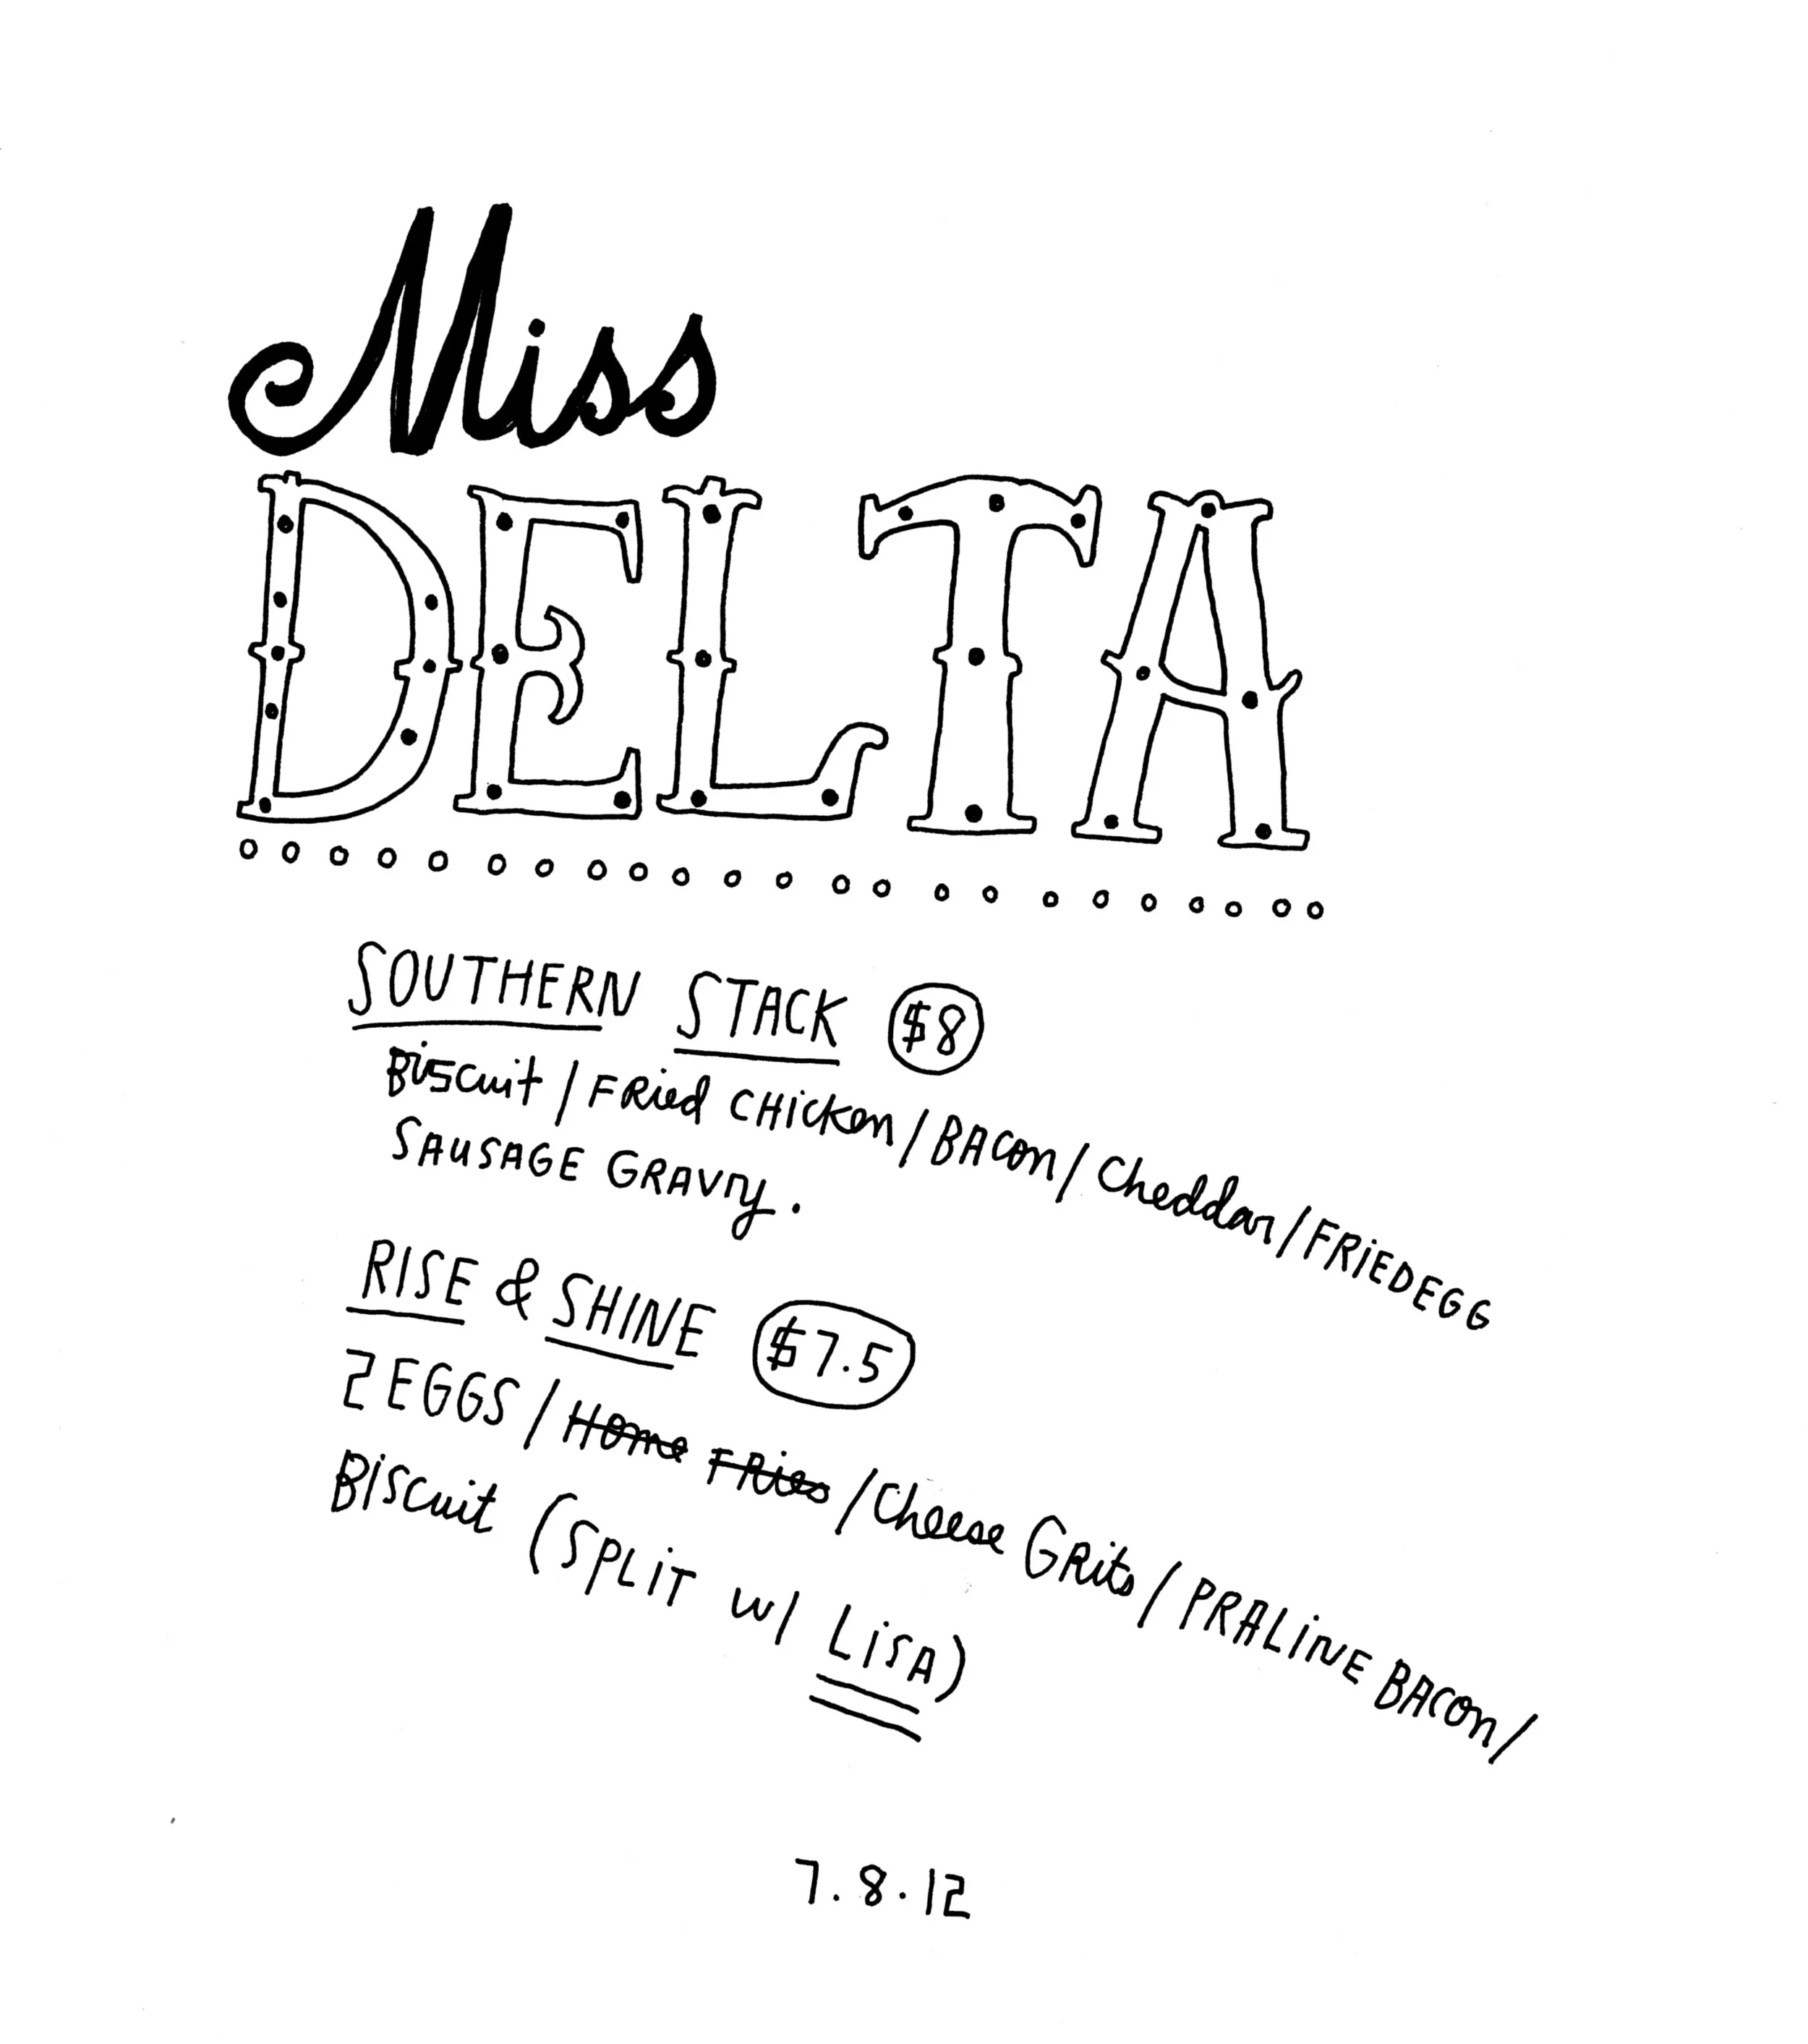 Miss
DELTA
SOUTHERN STACK $8
Biscuit / FRied CHicken / BACon / Cheddar / FRiEDEGG
SAUSAGE GRAVY.
RISE & SHINE $7.5
2 EGGS / Home FRies / Cheese GRits / PRALiNE BACon /
Biscuit (SPLiT w/ LiSA)
7.8.12